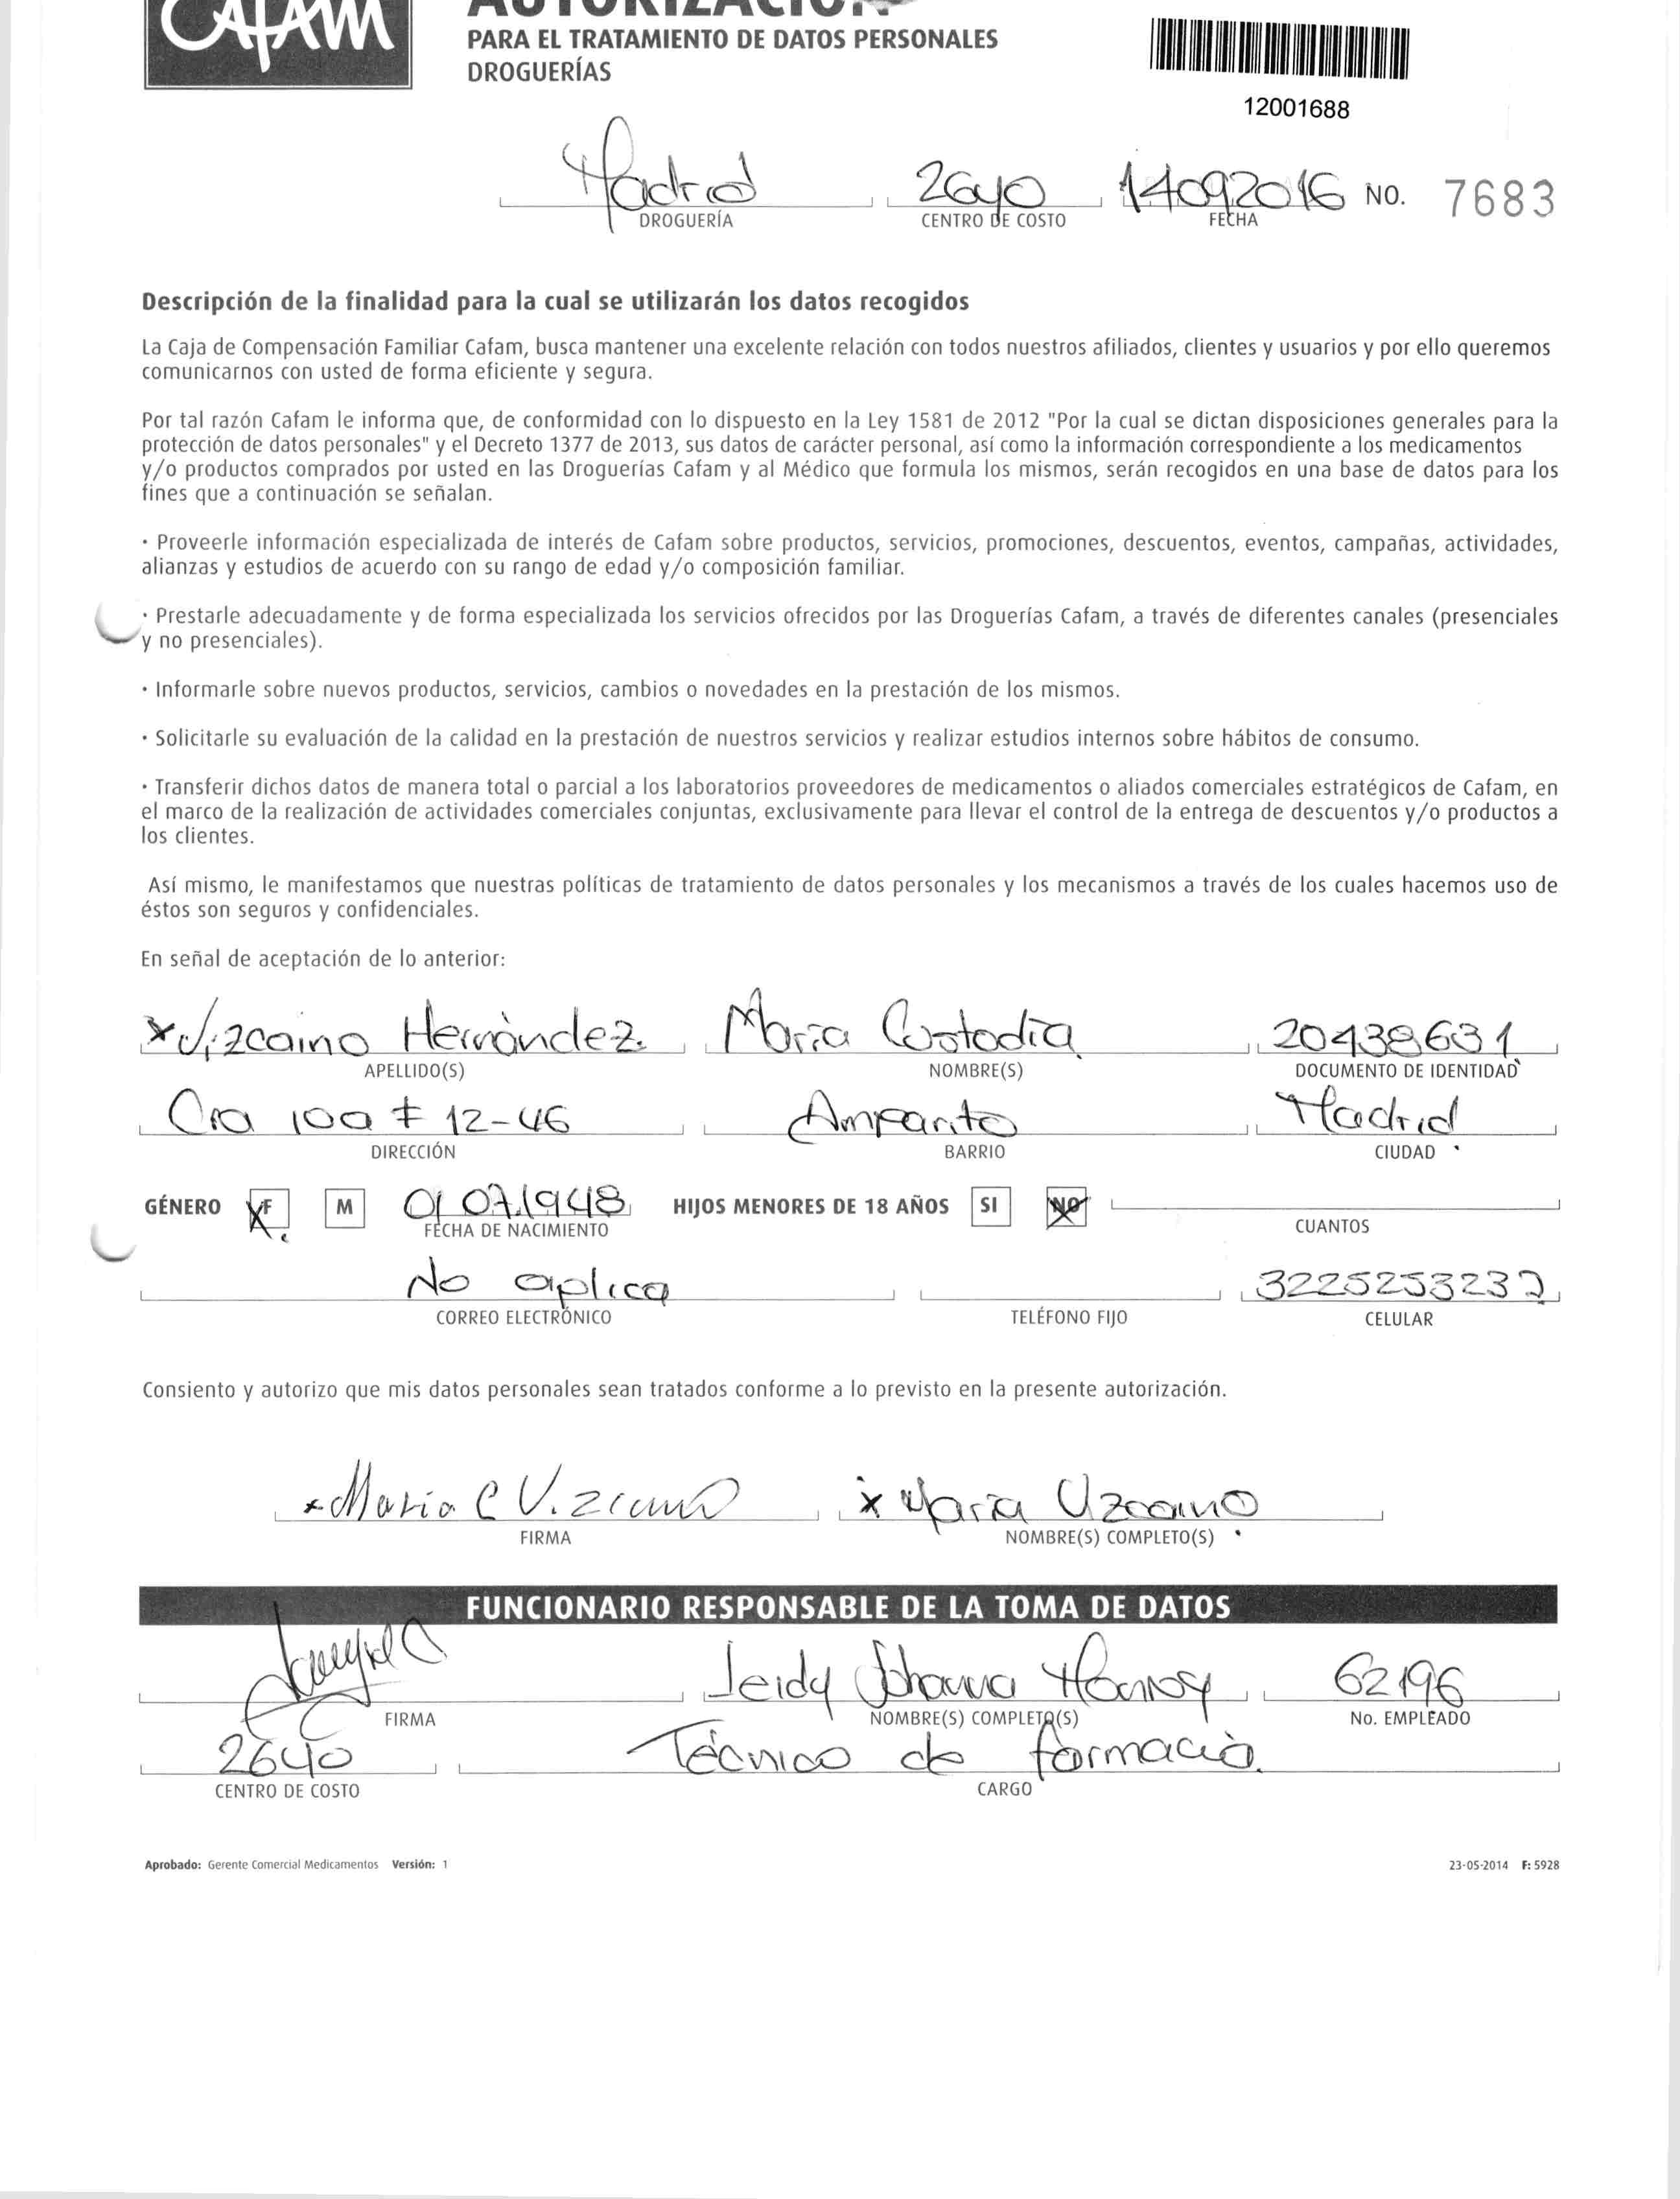 Cafam
AUTORIZACIÓN
PARA EL TRATAMIENTO DE DATOS PERSONALES
DROGUERÍAS
12001688
Madrid 2640 14092016 NO. 7683
DROGUERÍA CENTRO DE COSTO FECHA
Descripción de la finalidad para la cual se utilizarán los datos recogidos
La Caja de Compensación Familiar Cafam, busca mantener una excelente relación con todos nuestros afiliados, clientes y usuarios y por ello queremos
comunicarnos con usted de forma eficiente y segura.
Por tal razón Cafam le informa que, de conformidad con lo dispuesto en la Ley 1581 de 2012 "Por la cual se dictan disposiciones generales para la
protección de datos personales" y el Decreto 1377 de 2013, sus datos de carácter personal, así como la información correspondiente a los medicamentos
y/o productos comprados por usted en las Droguerías Cafam y al Médico que formula los mismos, serán recogidos en una base de datos para los
fines que a continuación se señalan.
· Proveerle información especializada de interés de Cafam sobre productos, servicios, promociones, descuentos, eventos, campañas, actividades,
alianzas y estudios de acuerdo con su rango de edad y/o composición familiar.
· Prestarle adecuadamente y de forma especializada los servicios ofrecidos por las Droguerías Cafam, a través de diferentes canales (presenciales
y no presenciales).
· Informarle sobre nuevos productos, servicios, cambios o novedades en la prestación de los mismos.
· Solicitarle su evaluación de la calidad en la prestación de nuestros servicios y realizar estudios internos sobre hábitos de consumo.
· Transferir dichos datos de manera total o parcial a los laboratorios proveedores de medicamentos o aliados comerciales estratégicos de Cafam, en
el marco de la realización de actividades comerciales conjuntas, exclusivamente para llevar el control de la entrega de descuentos y/o productos a
los clientes.
Así mismo, le manifestamos que nuestras políticas de tratamiento de datos personales y los mecanismos a través de los cuales hacemos uso de
éstos son seguros y confidenciales.
En señal de aceptación de lo anterior:
x Vizcaino Hernández. Maria Custodia 20438631
APELLIDO(S) NOMBRE(S) DOCUMENTO DE IDENTIDAD
Cra 10a # 12-46 Amparito Madrid
DIRECCIÓN BARRIO CIUDAD
GÉNERO F M 01 07 1948 HIJOS MENORES DE 18 AÑOS SI NO
FECHA DE NACIMIENTO CUANTOS
No aplica 3225253232
CORREO ELECTRÓNICO TELÉFONO FIJO CELULAR
Consiento y autorizo que mis datos personales sean tratados conforme a lo previsto en la presente autorización.
x Maria C Vizcaino x Maria Vizcaino
FIRMA NOMBRE(S) COMPLETO(S)
FUNCIONARIO RESPONSABLE DE LA TOMA DE DATOS
Leidy Johanna Monroy 62196
FIRMA NOMBRE(S) COMPLETO(S) No. EMPLEADO
2640 Técnico de farmacia.
CENTRO DE COSTO CARGO
Aprobado: Gerente Comercial Medicamentos Versión: 1 23-05-2014 F: 5928